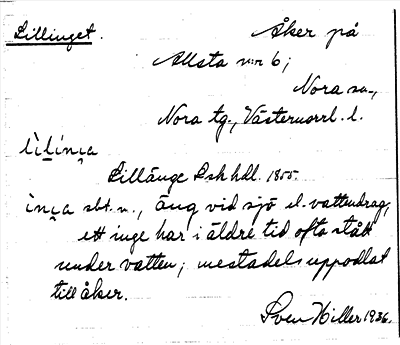 Lillinget.
Åker på
Allsta n:r 6;
Nora sn.,
Nora tg., Västernorrl. l.
lìlínca
Lillänge Lskhdl. 1855.
ìnca sbt. n., äng vid sjö el. vattendrag,
ett inge har i äldre tid ofta stått
under vatten; mestadels uppodlat
till åker.
Sven Hiller 1936.